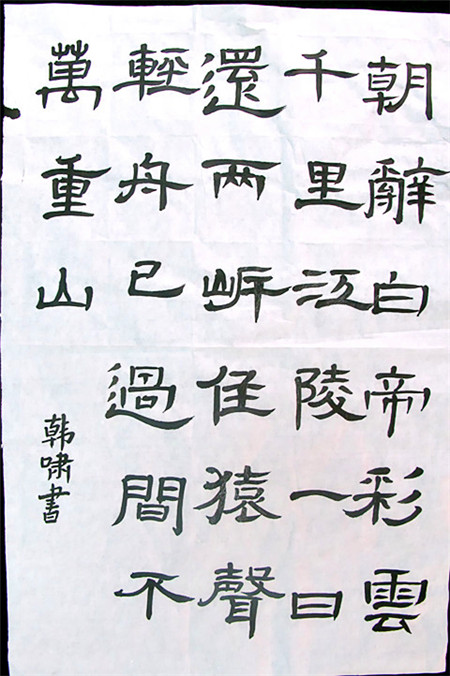 朝辭白帝彩雲
千里江陵一日
還两岸住猿聲
輕舟已過間不
萬重山
韩啸書